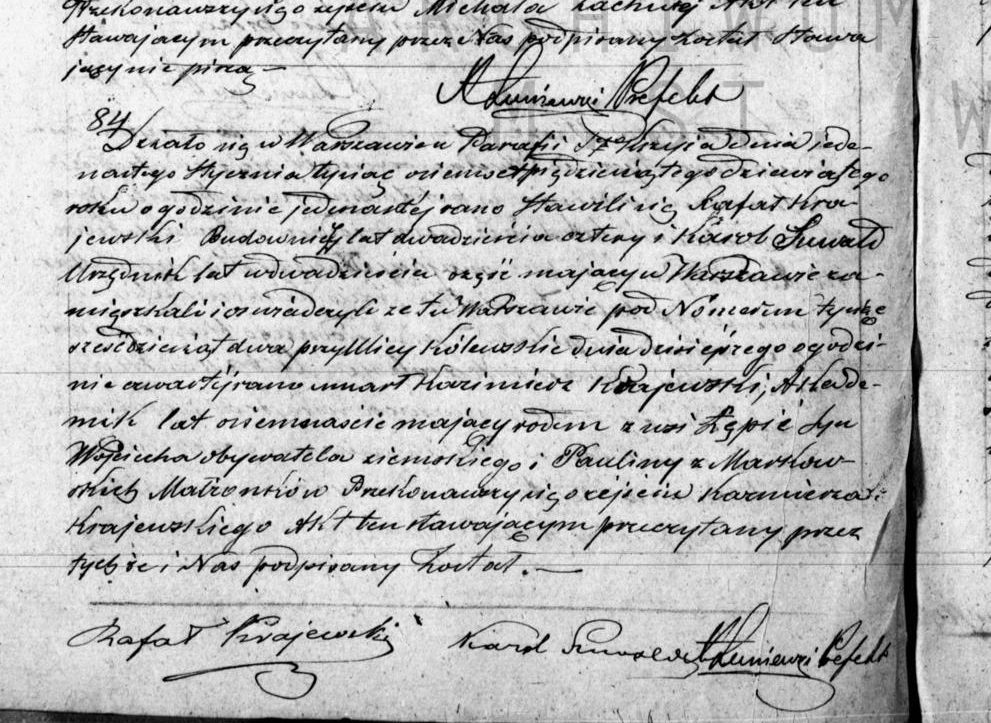 Przekonawszy się o zejściu Michała Akt ten
stawającym przeczytany przez Nas podpisany został Stawa
jący nie piszą —
Prefekt
84
Działo się w Warszawie w Parafii Sgo Krzyża dnia jede-
nastego Stycznia tysiąc ośmset pięćdziesiątego dziewiątego
roku o godzinie jedenastéj rano Stawili się Rafał Kra-
jewski Budowniczy lat dwadzieścia cztery i Karol
Urzędnik lat dwadzieścia sześć mający w Warszawie za-
mięszkali i oswiadczyli że tu w Warszawie pod Numerem tysiąc
sześćdziesiąt dwa przy Ulicy Królewskie dnia dzisiejszego o godzi-
nie czwartéj rano umarł Kazimierz Krajewski, Akade-
mik lat ośmnaście mający rodem z wsi Łępie Syn
Wojciecha obywatela ziemskiego i Pauliny z Markow-
skich Małżonków Przekonawszy się o zejściu Kazmierza
Krajewskiego Akt ten stawającym przeczytany przez
tychże i Nas podpisany Został. —
Rafał Krajewski Karol Prefekt